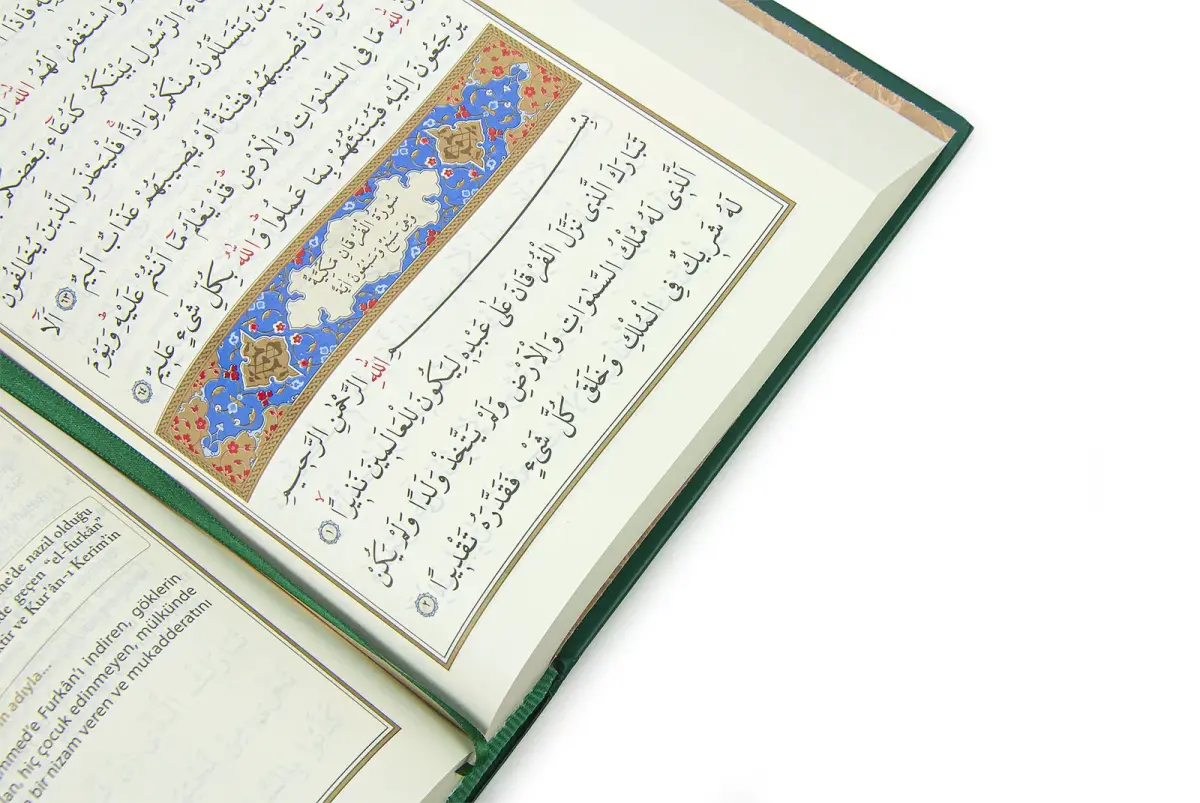 وَاسْتَغْفِرْ لَهُمُ اللّٰهَ
الرَّسُولِ بَيْنَكُمْ كَدُعَٓاءِ بَعْضِكُمْ
يَتَسَلَّلُونَ مِنْكُمْ لِوَاذًا فَلْيَحْذَرِ الَّذ۪ينَ يُخَالِفُونَ
اَنْ تُص۪يبَهُمْ فِتْنَةٌ اَوْ يُص۪يبَهُمْ عَذَابٌ اَل۪يمٌ ٦٣ اَلَٓا
لِلّٰهِ مَا فِي السَّمٰوَاتِ وَالْاَرْضِ قَدْ يَعْلَمُ مَٓا اَنْتُمْ عَلَيْهِ وَيَوْمَ
يُرْجَعُونَ اِلَيْهِ فَيُنَبِّئُهُمْ بِمَا عَمِلُوا وَاللّٰهُ بِكُلِّ شَيْءٍ عَل۪يمٌ ٦٤
سُورَةُ الْفُرْقَانِ مَكِّيَّةٌ
وَهِيَ سَبْعٌ وَسَبْعُونَ اٰيَةً
بِسْمِ اللّٰهِ الرَّحْمٰنِ الرَّح۪يمِ
تَبَارَكَ الَّذ۪ي نَزَّلَ الْفُرْقَانَ عَلٰى عَبْدِه۪ لِيَكُونَ لِلْعَالَم۪ينَ نَذ۪يرًا ١
اَلَّذ۪ي لَهُ مُلْكُ السَّمٰوَاتِ وَالْاَرْضِ وَلَمْ يَتَّخِذْ وَلَدًا وَلَمْ يَكُنْ
لَهُ شَر۪يكٌ فِي الْمُلْكِ وَخَلَقَ كُلَّ شَيْءٍ فَقَدَّرَهُ تَقْد۪يرًا ٢
nazil olduğu
geçen “el-furkân”
ve Kur'ân-ı Kerîm'in
adıyla...
Furkân'ı indiren, göklerin
hiç çocuk edinmeyen, mülkünde
bir nizam veren ve mukadderatını